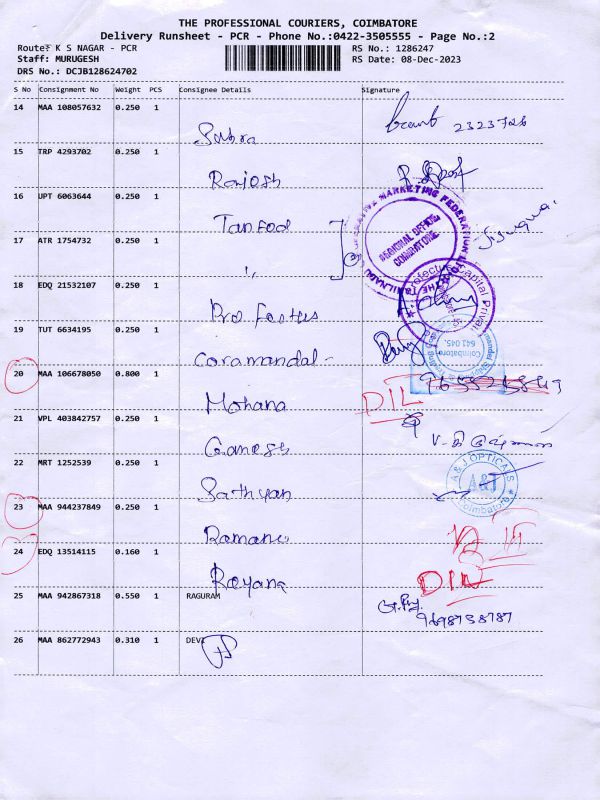 THE PROFESSIONAL COURIERS, COIMBATORE
Delivery Runsheet - PCR - Phone No.:0422-3505555 - Page No.:2
Route: K S NAGAR - PCR
RS No.: 1286247
Staff: MURUGESH
RS Date: 08-Dec-2023
DRS No.: DCJB128624702
S No Consignment No Weight PCS Consignee Details Signature
14 MAA 108057632 0.250 1
Subra 2323726
15 TRP 4293702 0.250 1
Rajesh
16 UPT 6063644 0.250 1
Tanfed
17 ATR 1754732 0.250 1
"
REGIONAL OFFICE
COIMBATORE
18 EDQ 21532107 0.250 1
Pro
19 TUT 6634195 0.250 1
Coramandal -
Coimbatore
641 045.
20 MAA 106678050 0.800 1
Mohana DIL
21 VPL 403842757 0.250 1
Ganesh
22 MRT 1252539 0.250 1
Sathyan
A & J OPTICALS
A&J
Coimbatore
23 MAA 944237849 0.250 1
24 EDQ 13514115 0.160 1
Rayana
25 MAA 942867318 0.550 1 RAGURAM
26 MAA 862772943 0.310 1 DEVI